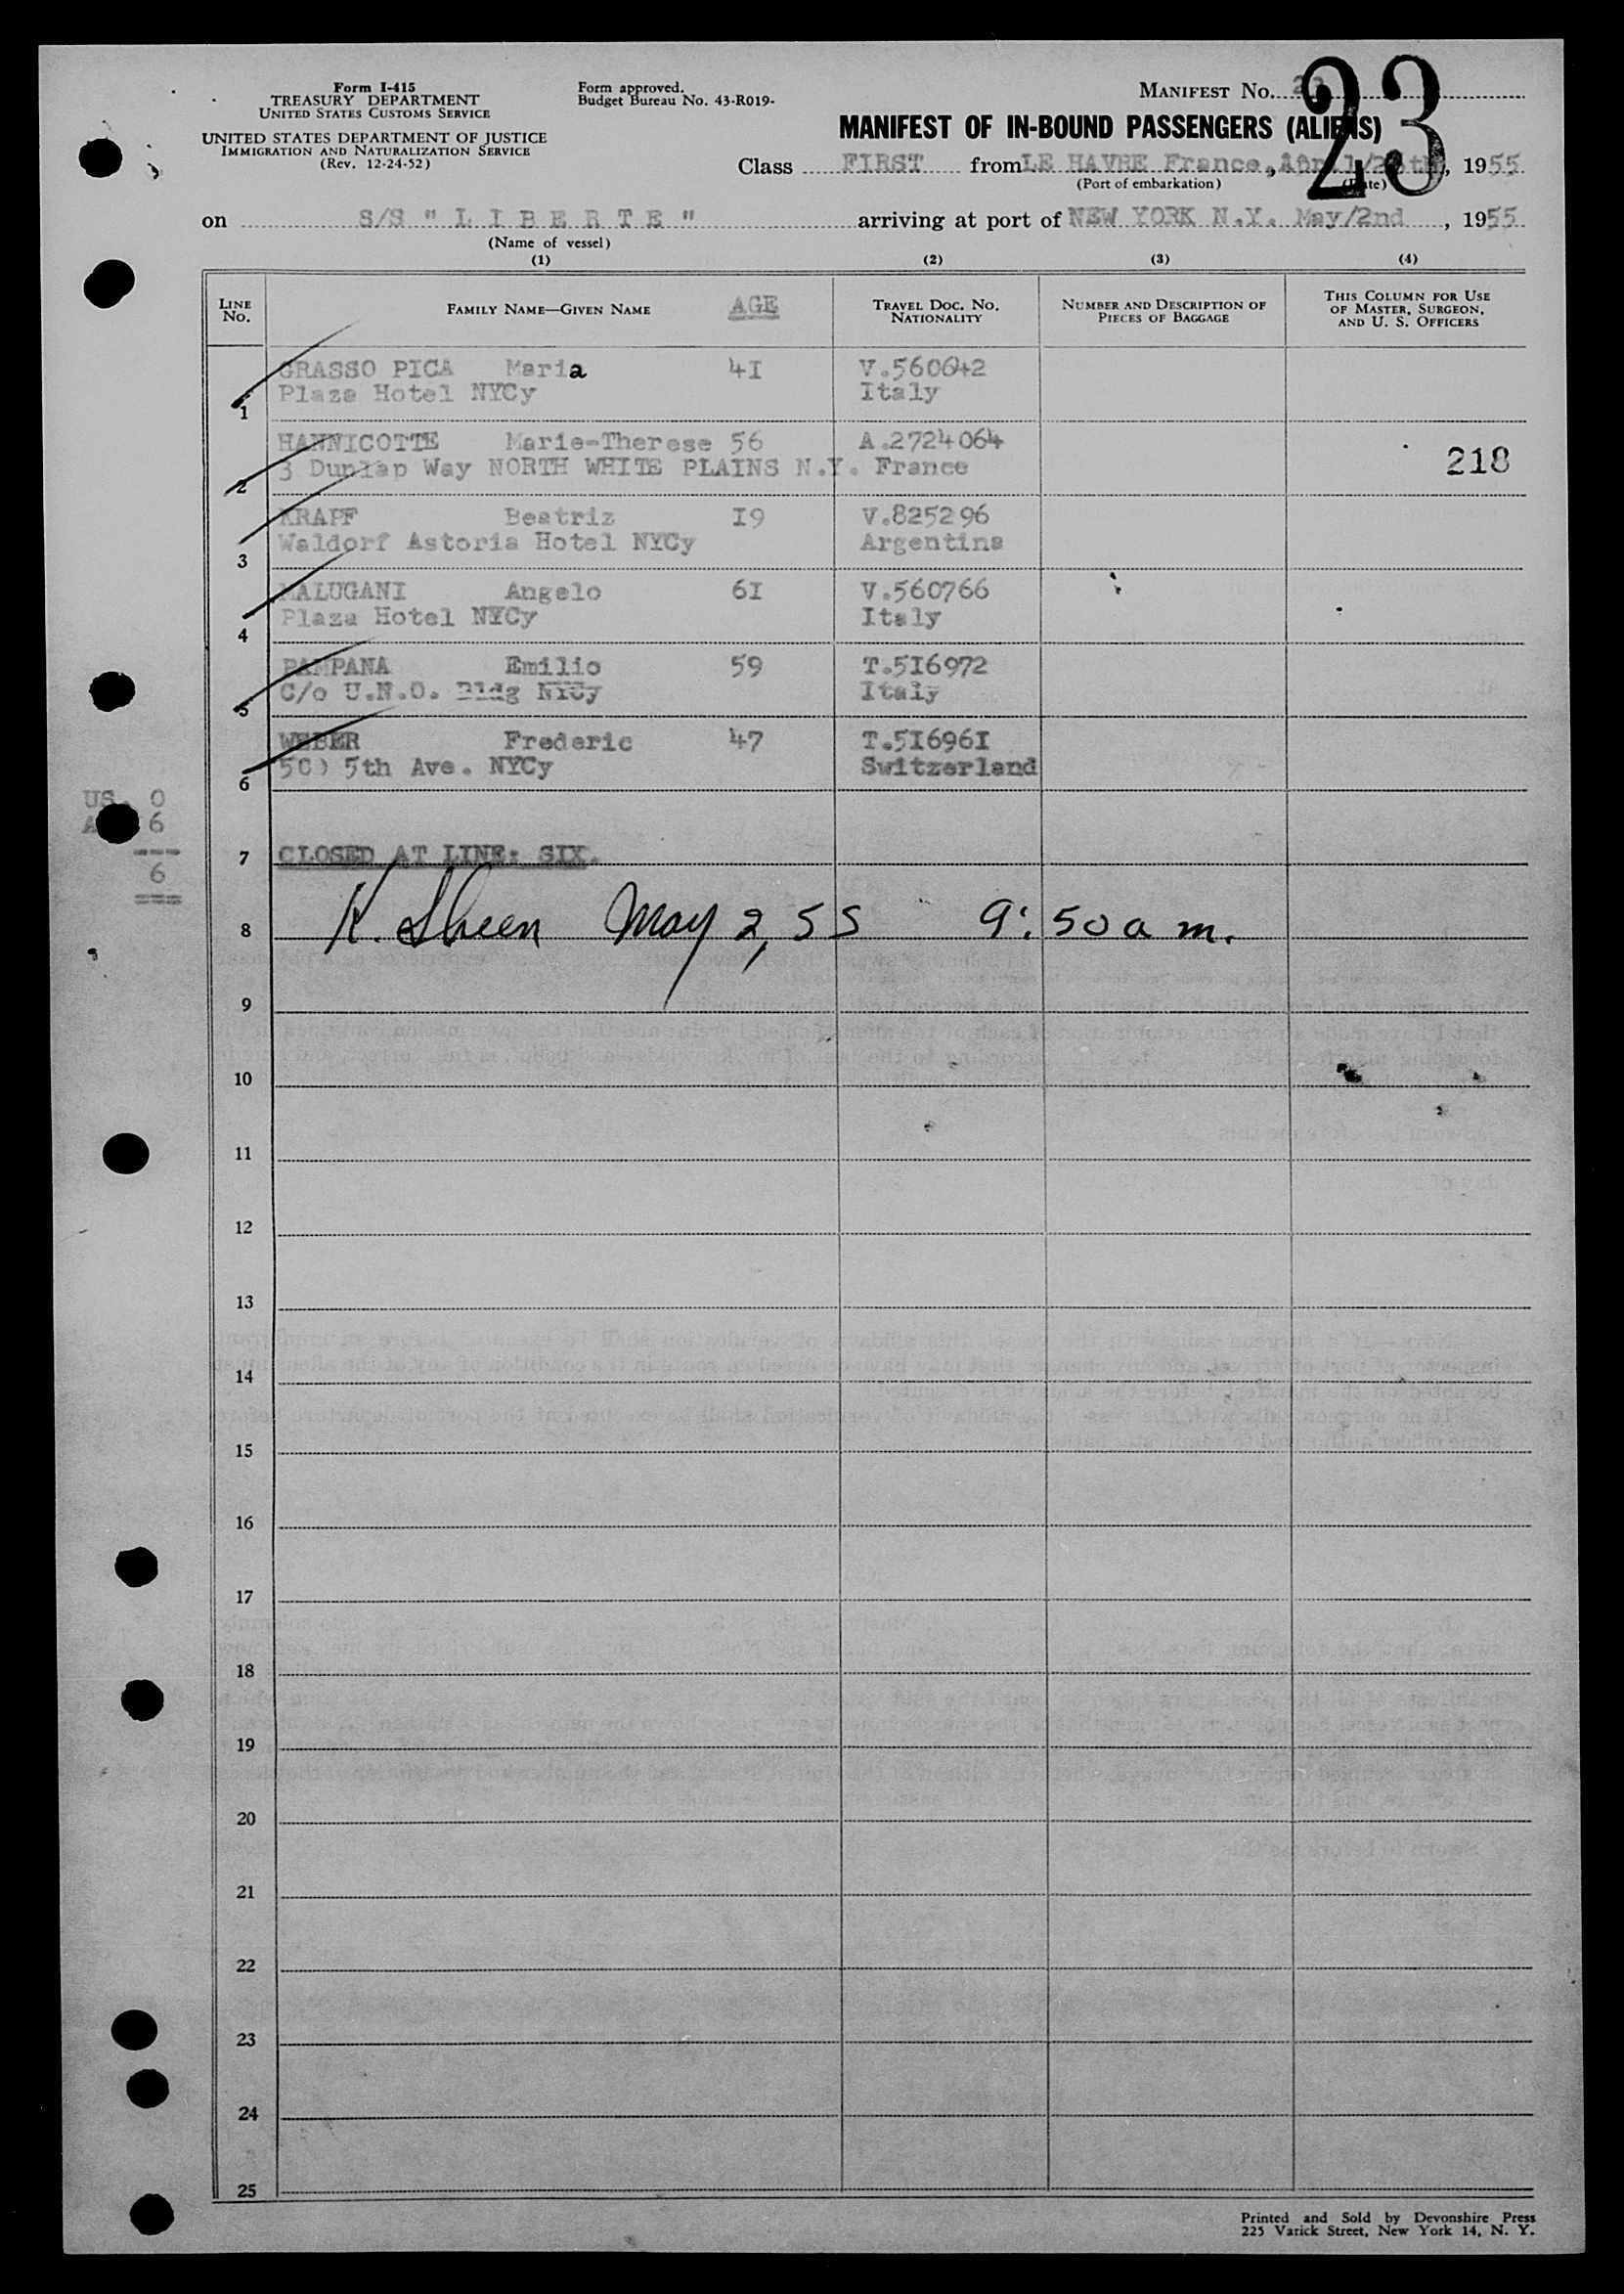 Form I-415
TREASURY DEPARTMENT
UNITED STATES CUSTOMS SERVICE
UNITED STATES DEPARTMENT OF JUSTICE
IMMIGRATION AND NATURALIZATION SERVICE
(Rev. 12-24-52)
Form approved.
Budget Bureau No. 43-R019-
MANIFEST No. 23
23
MANIFEST OF IN-BOUND PASSENGERS (ALIENS)
Class FIRST from LE HAVRE France, April/ , 1955
(Port of embarkation) (Date)
on S/S " L I B E R T E " arriving at port of NEW YORK N.Y. May/2nd , 1955
(Name of vessel)
(1) (2) (3) (4)
LINE No. FAMILY NAME—GIVEN NAME AGE TRAVEL DOC. NO. NATIONALITY NUMBER AND DESCRIPTION OF PIECES OF BAGGAGE THIS COLUMN FOR USE OF MASTER, SURGEON, AND U. S. OFFICERS
GRASSO PICA Maria 4I V.560642
1 Plaza Hotel NYCy Italy
HANNICOTTE Marie-Therese 56 A.2724064
2 3 Dunlap Way NORTH WHITE PLAINS N.Y. France 218
KRAPF Beatriz I9 V.825296
3 Waldorf Astoria Hotel NYCy Argentina
MALUGANI Angelo 6I V.560766
4 Plaza Hotel NYCy Italy
PAMPANA Emilio 59 T.5I6972
5 C/o U.N.O. Bldg NYCy Italy
WEBER Frederic 47 T.5I696I
6 5th Ave. NYCy Switzerland
US. 0
6
---
6
===
7 CLOSED AT LINE: SIX.
8 K. Sheen May 2, 55 9:50 a m.
9
10
11
12
13
14
15
16
17
18
19
20
21
22
23
24
25
Printed and Sold by Devonshire Press
225 Varick Street, New York 14, N. Y.